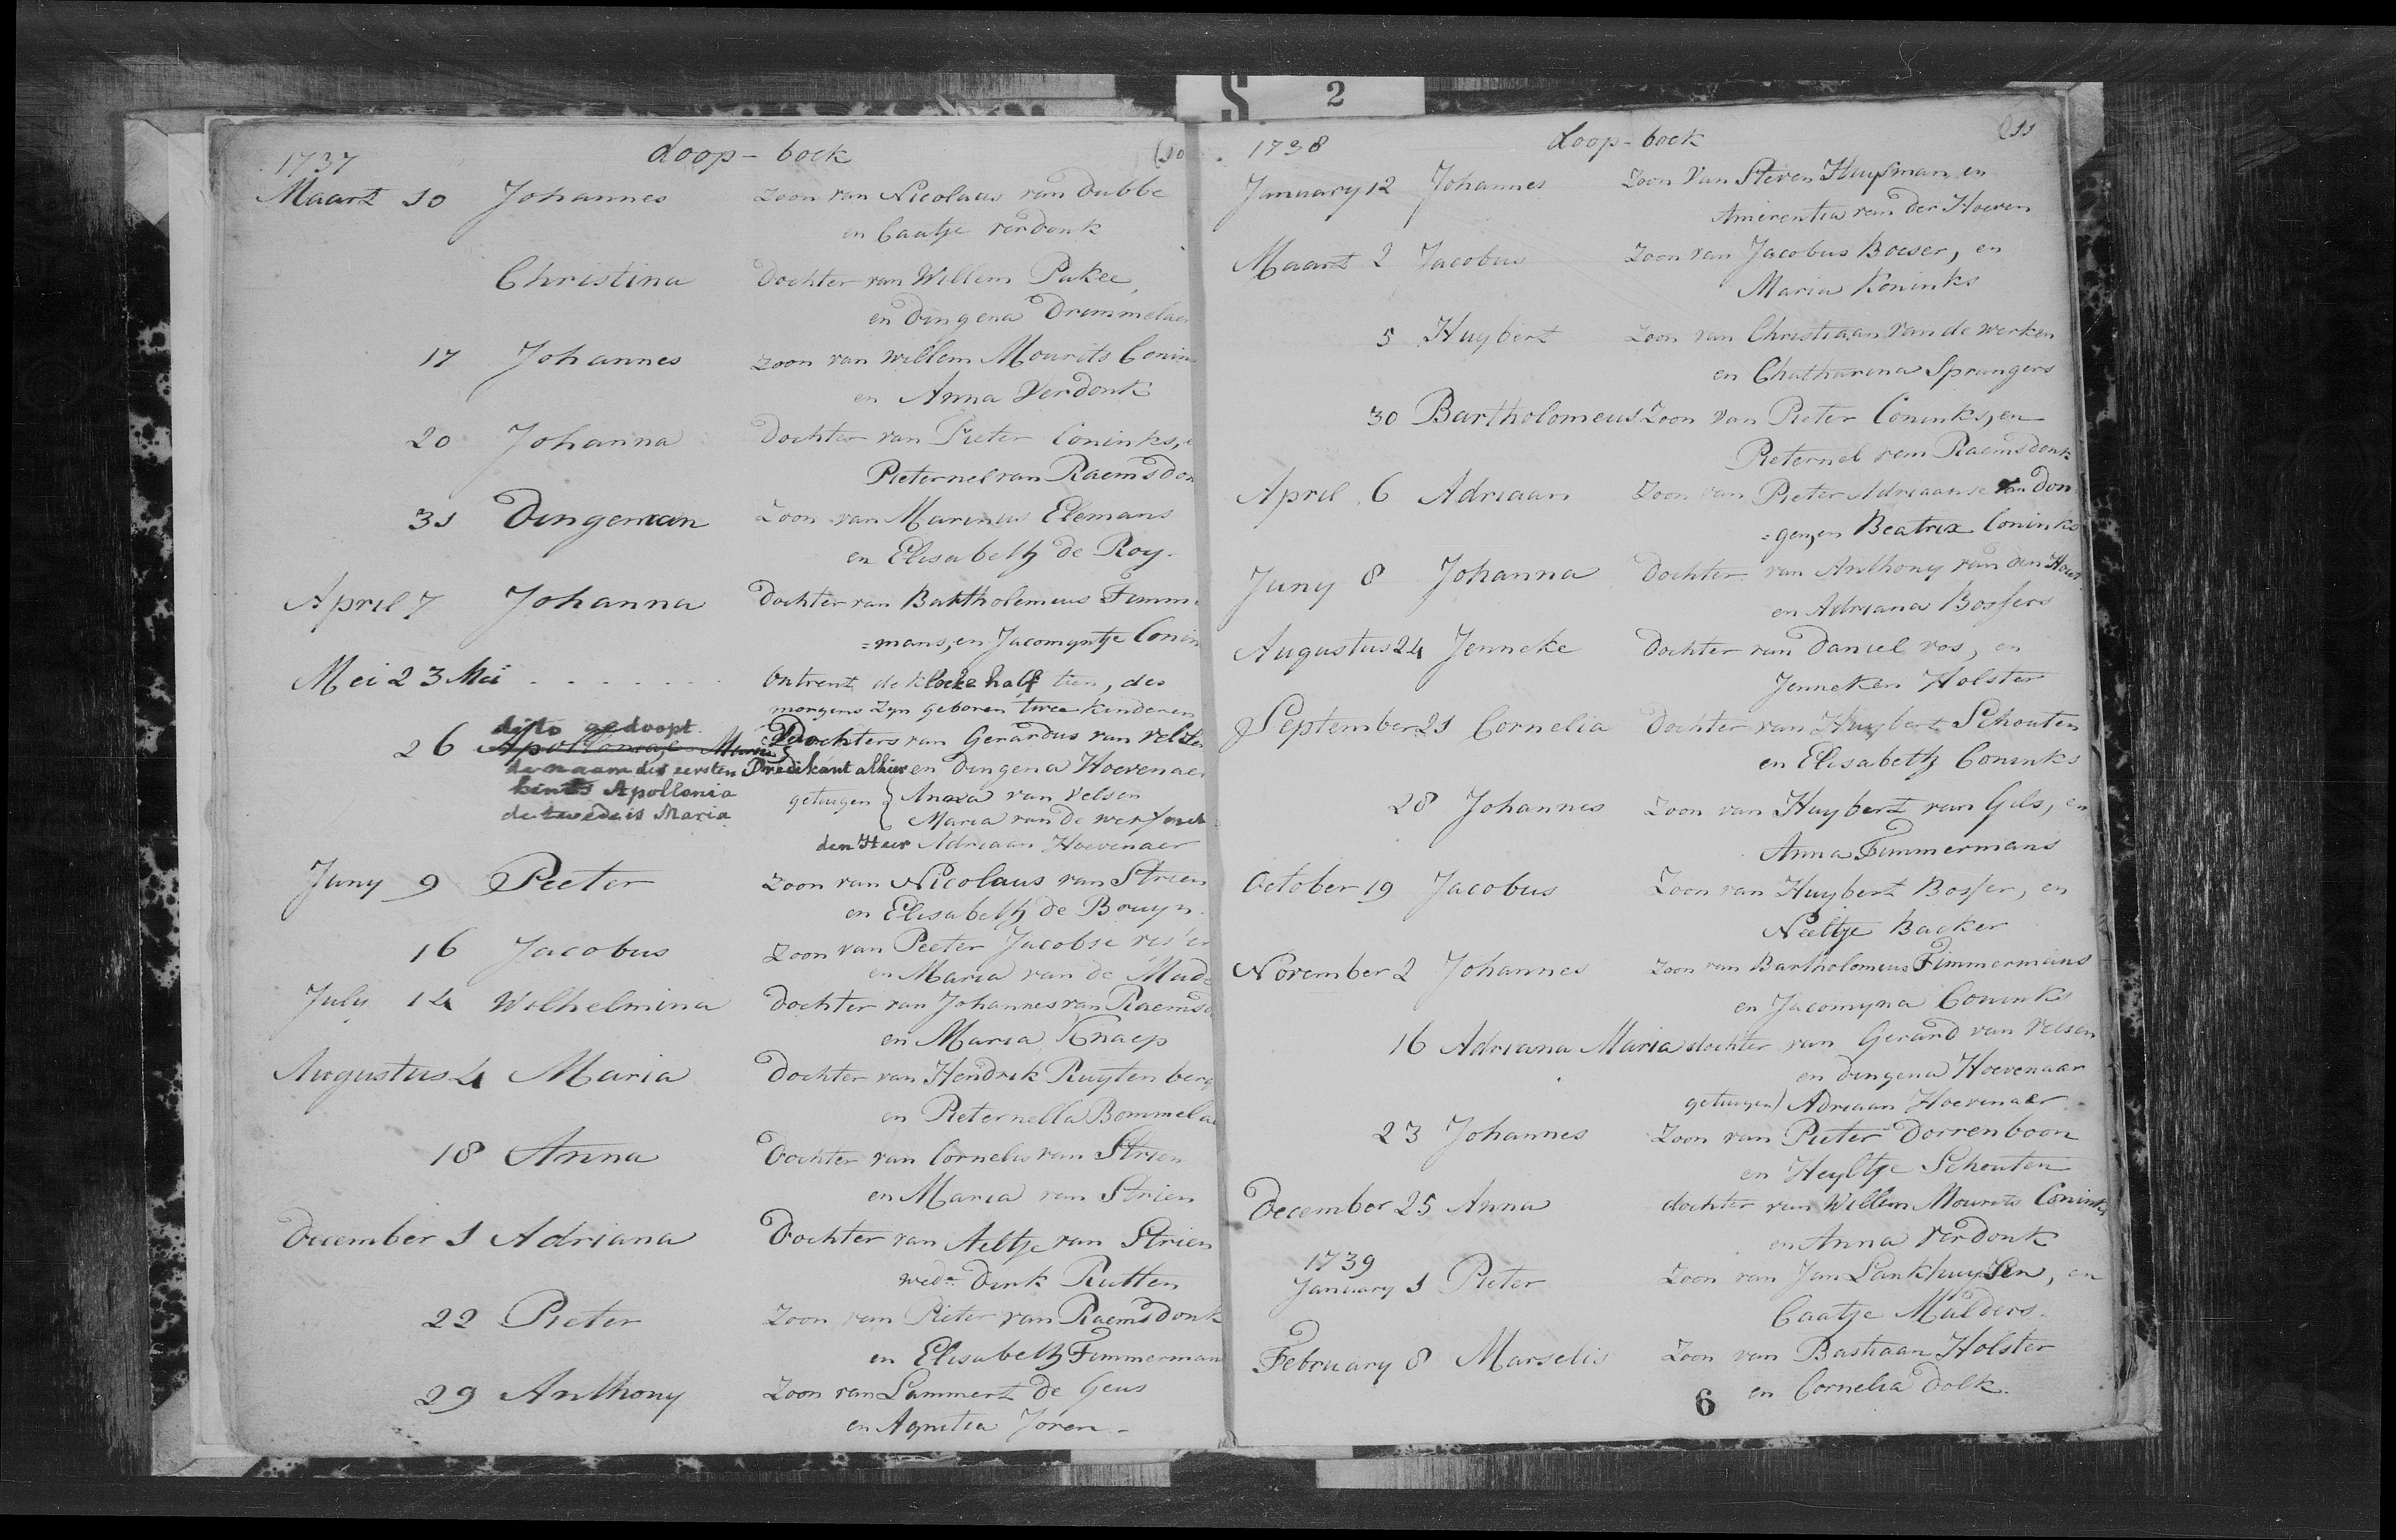 S 2
1737 doop-boek (10
Maart 10 Johannes Zoon van Nicolaas van Dubbe
en Caatje verdonk
Christina Dochter van Willem Pakee,
en Dingena Drimmelaer
17 Johannes Zoon van willem Mourits Conin
en Anna Verdonk
20 Johanna Dochter van Pieter Coninks,
Pieternel van Raemsdon
31 Dingeman Zoon van Marinus Elemans
en Elisabeth de Roy.
April 7 Johanna Dochter van Bartholomeus Timm
=mans, en Jacomyntje Conin
Mei 23 Mei . . . . . . . Ontrent de klocke half tien, des
morgens zyn geboren twee kinderen
dito gedoopt
26 Apollonia en Maria Dochters van Gerardus van Velsen
de naam des eersten Predikant alhier en Dingena Hoevenaer
kints Apollonia getuigen Anna van Velsen
de twede is Maria Maria van de
den Heer Adriaan Hoevenaer
Juny 9 Peeter Zoon van Nicolaus van Strien
en Elisabeth de Bruyn.
16 Jacobus Zoon van Peeter Jacobse
en Maria van de Made
July 14 Wilhelmina Dochter van Johannes van Raemsd
en Maria Knaep
Augustus 4 Maria Dochter van Hendrik Ruytenberg
en Pieternella Bommelaer
18 Anna Dochter van Cornelis van Strien
en Maria van Strien
December 1 Adriana Dochter van Aeltje van Strien
wede Dirk Rutten
22 Pieter Zoon van Pieter van Raemsdonk
en Elisabeth Timmerman
29 Anthony Zoon van Lammert de Geus
en Agnitia Joren -
1738 doop-boek (11
January 12 Johannes Zoon van Steven Huysman en
Amerentia van der Hoeven
Maart 2 Jacobus Zoon van Jacobus Boeser, en
Maria Koninks
5 Huybert Zoon van Christiaan van de werken
en Chatharina Sprangers
30 Bartholomeus Zoon van Pieter Coninks, en
Pieternel van Raemsdonk
April 6 Adriaan Zoon van Pieter Adriaanse van Don
=gen, en Beatrix Coninks
Juny 8 Johanna Dochter van Anthony van den
en Adriana Bossers
Augustus 24 Jenneke Dochter van Daniel vos, en
Jenneken Holster
September 21 Cornelia Dochter van Huybert Schouten
en Elisabeth Coninks
28 Johannes Zoon van Huybert van Gils, en
Anna Timmermans
October 19 Jacobus Zoon van Huybert Bosser, en
Neeltje Backer
November 2 Johannes Zoon van Bartholomeus Timmermans
en Jacomyna Coninks
16 Adriana Maria dochter van Gerard van Velsen
en Dingena Hoevenaar
getuigen) Adriaan Hoevenaer.
23 Johannes Zoon van Pieter Dorrenboon
en Heyltje Schouten
December 25 Anna dochter van Willem Mourits Coninks
en Anna Verdonk
1739
January 1 Pieter Zoon van Jan Lankhuysen, en
Caatje Mulders.
February 8 Marselis Zoon van Bastiaan Holster
en Cornelia Dolk.
6